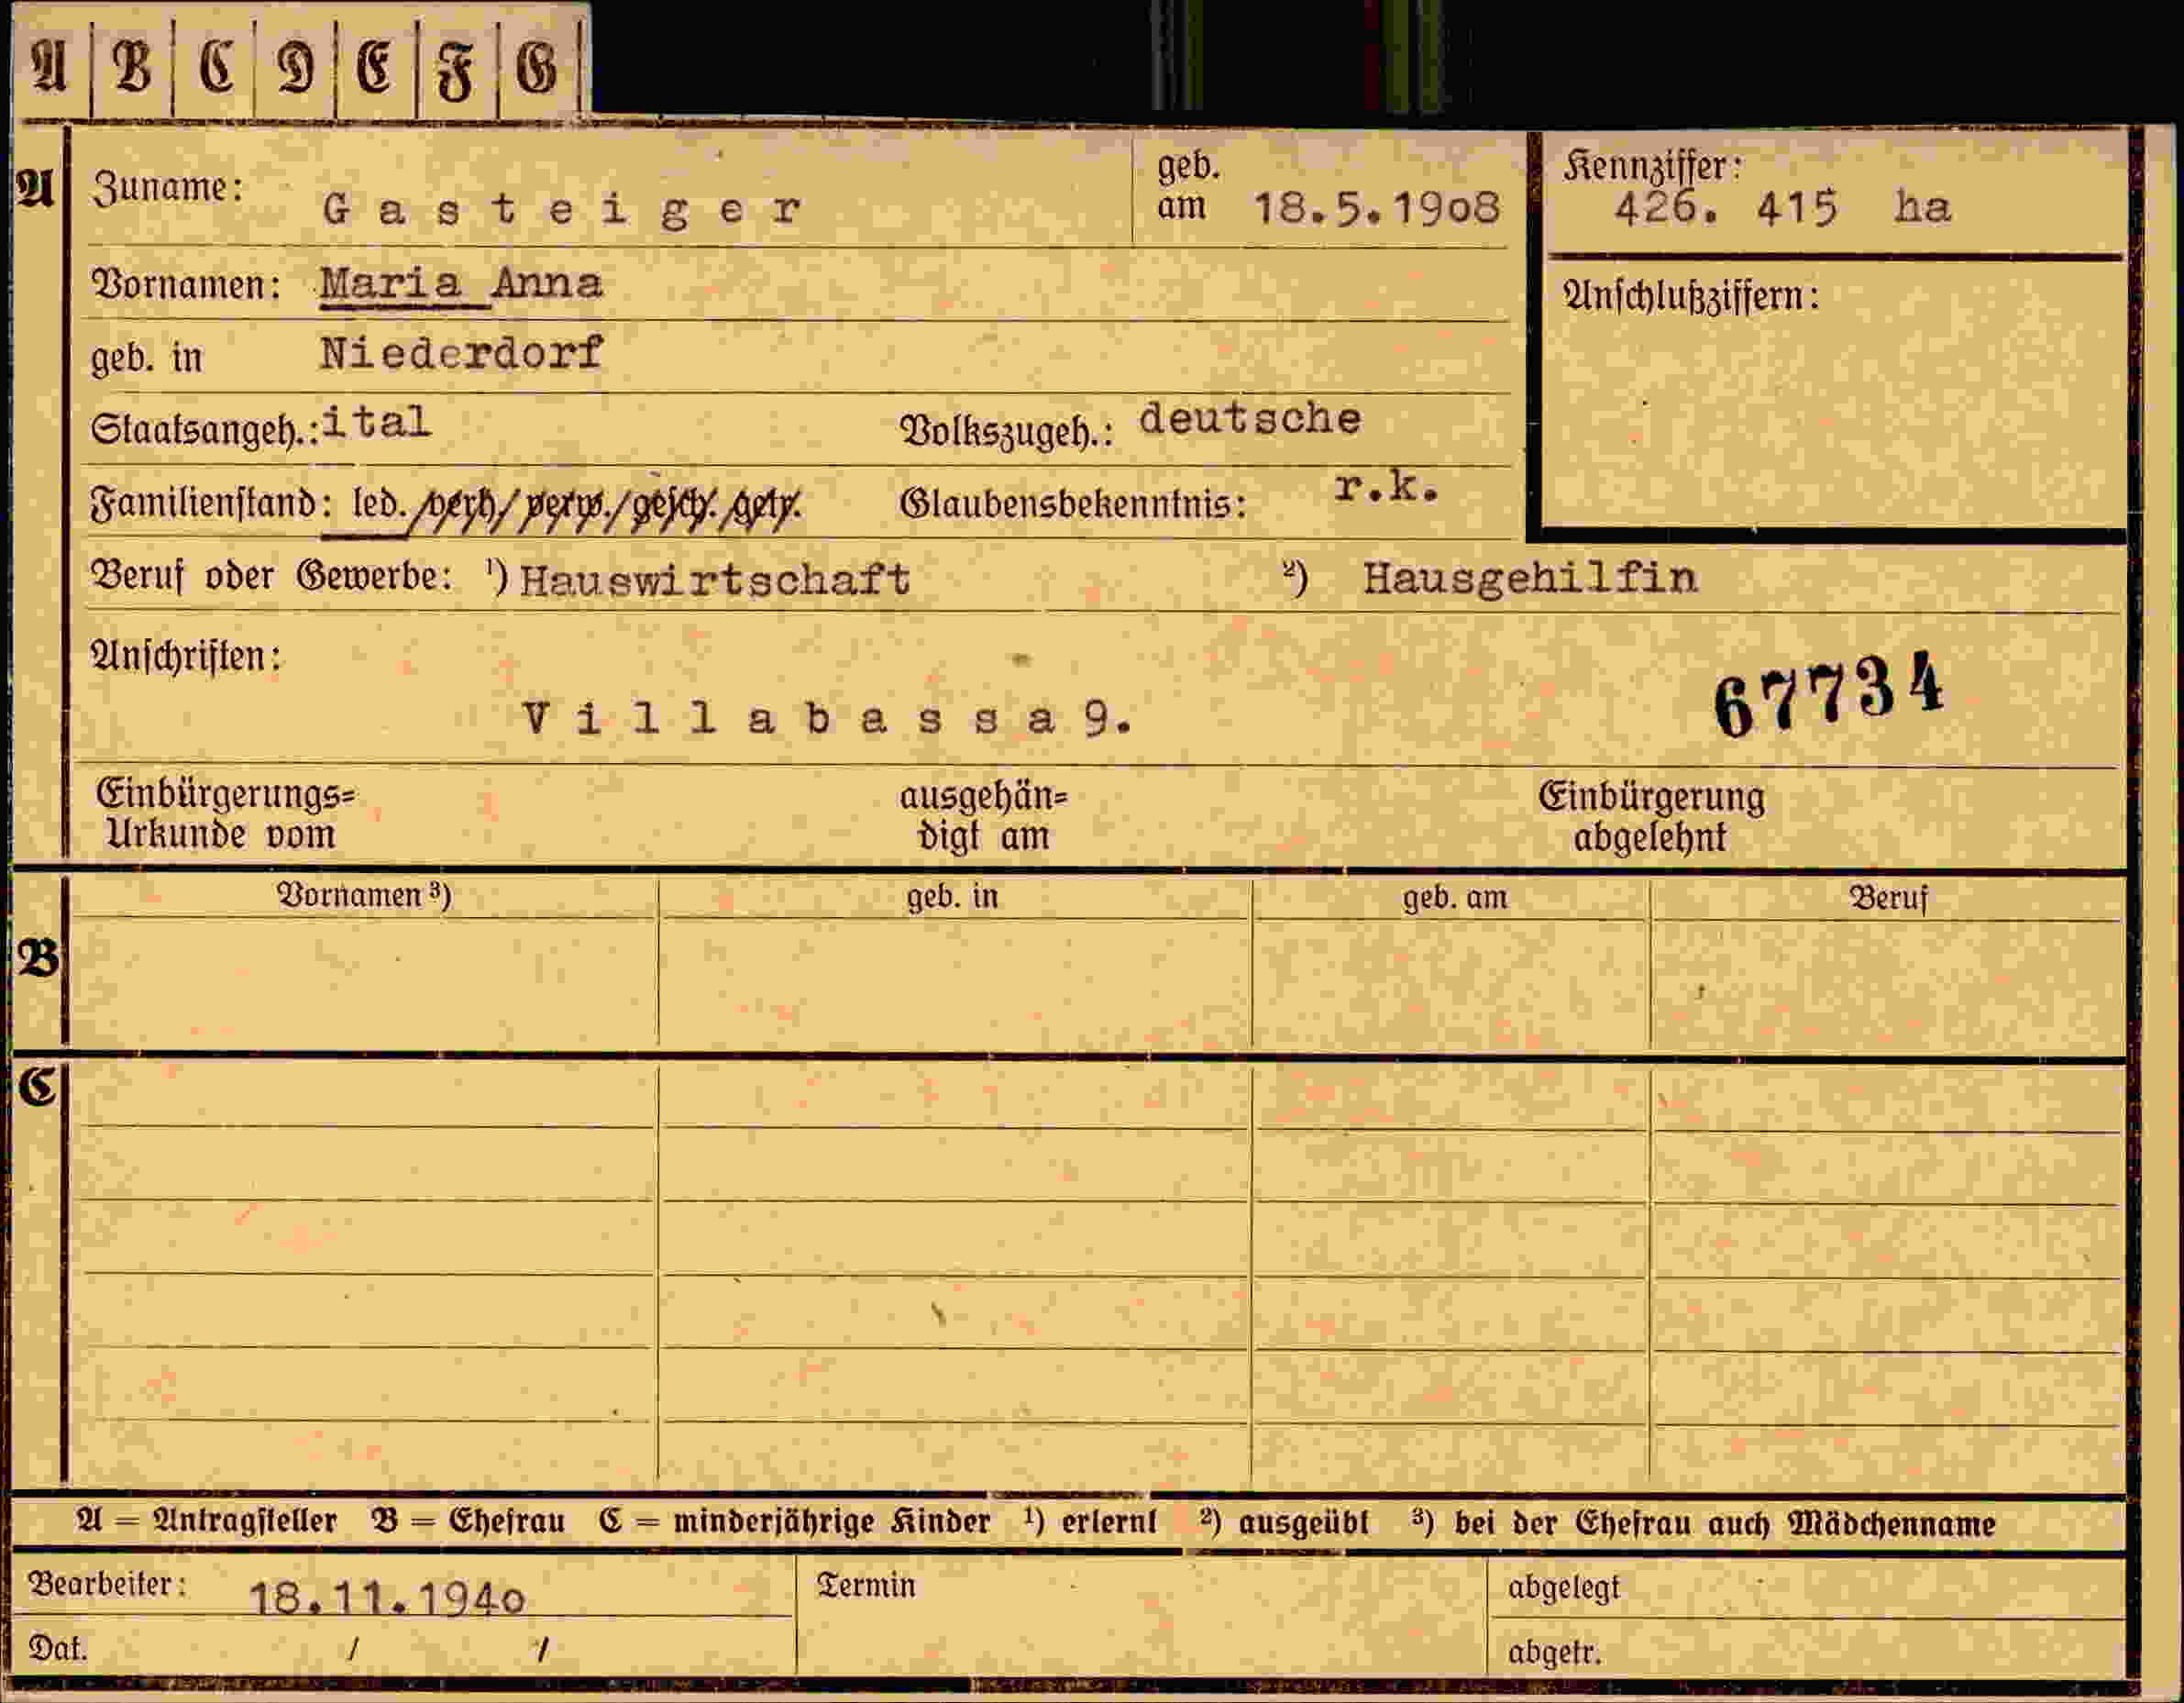 A B C D E F G
A Zuname: Gasteiger geb. am 18.5.1908 Kennziffer: 426. 415 ha
Vornamen: Maria Anna Anschlußziffern:
geb. in Niederdorf
Staatsangeh.: ital Volkszugeh.: deutsche
Familienstand: led./verh/verw./gesch./getr. Glaubensbekenntnis: r.k.
Beruf oder Gewerbe: ¹) Hauswirtschaft ²) Hausgehilfin
Anschriften:
Villabassa 9. 67734
Einbürgerungs= ausgehän= Einbürgerung
Urkunde vom digt am abgelehnt
Vornamen ³) geb. in geb. am Beruf
B
C
A = Antragsteller B = Ehefrau C = minderjährige Kinder ¹) erlernt ²) ausgeübt ³) bei der Ehefrau auch Mädchenname
Bearbeiter: 18.11.1940 Termin abgelegt
Dat. / / abgetr.